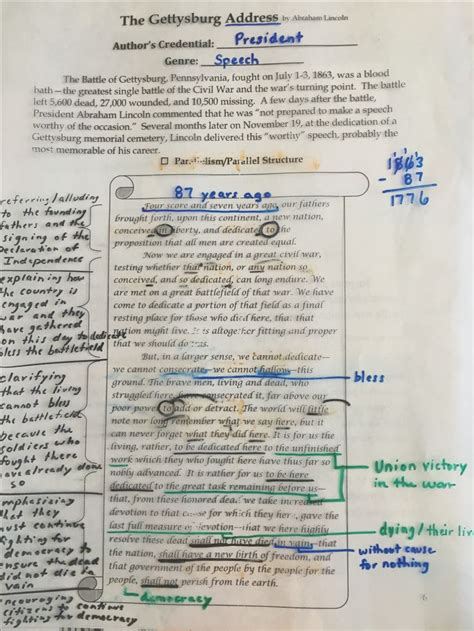 The Gettysburg Address by Abraham Lincoln
Author's Credential: President
Genre: Speech
The Battle of Gettysburg, Pennsylvania, fought on July 1-3, 1863, was a blood
bath—the greatest single battle of the Civil War and the war's turning point. The battle
left 5,600 dead, 27,000 wounded, and 10,500 missing. A few days after the battle,
President Abraham Lincoln commented that he was "not prepared to make a speech
worthy of the occasion." Several months later on November 19, at the dedication of a
Gettysburg memorial cemetery, Lincoln delivered this "worthy" speech, probably the
most memorable of his career.
Parallelism/Parallel Structure
1863
- 87
1776
87 years ago
Four score and seven years ago, our fathers
brought forth, upon this continent, a new nation,
conceived in liberty, and dedicated to the
proposition that all men are created equal.
Now we are engaged in a great civil war,
testing whether that nation, or any nation so
conceived, and so dedicated, can long endure. We
are met on a great battlefield of that war. We have
come to dedicate a portion of that field as a final
resting place for those who died here, that that
nation might live. It is altogether fitting and proper
that we should do this.
But, in a larger sense, we cannot dedicate—
we cannot consecrate—we cannot hallow—this
ground. The brave men, living and dead, who
struggled here, have consecrated it, far above our
poor power to add or detract. The world will little
note nor long remember what we say here, but it
can never forget what they did here. It is for us the
living, rather, to be dedicated here to the unfinished
work which they who fought here have thus far so
nobly advanced. It is rather for us to be here
dedicated to the great task remaining before us—
that, from these honored dead we take increased
devotion to that cause for which they, here, gave the
last full measure of devotion—that we here highly
resolve these dead shall not have died in vain; that
the nation, shall have a new birth of freedom, and
that government of the people by the people for the
people, shall not perish from the earth.
referring/alluding
to the founding
fathers and the
signing of the
Declaration of
Independence
explaining how
the country is
engaged in
war and they
have gathered
on this day to dedicate
bless the battlefield
clarifying
that the living
cannot bless
the battlefield
because the
soldiers who
fought there
have already done
so
emphasizing
that they
must continue
fighting for
democracy to
ensure the dead
did not die in
vain
encouraging
citizens to continue
fighting for democracy
bless
Union victory
in the war
dying/their li
without cause
for nothing
democracy
6